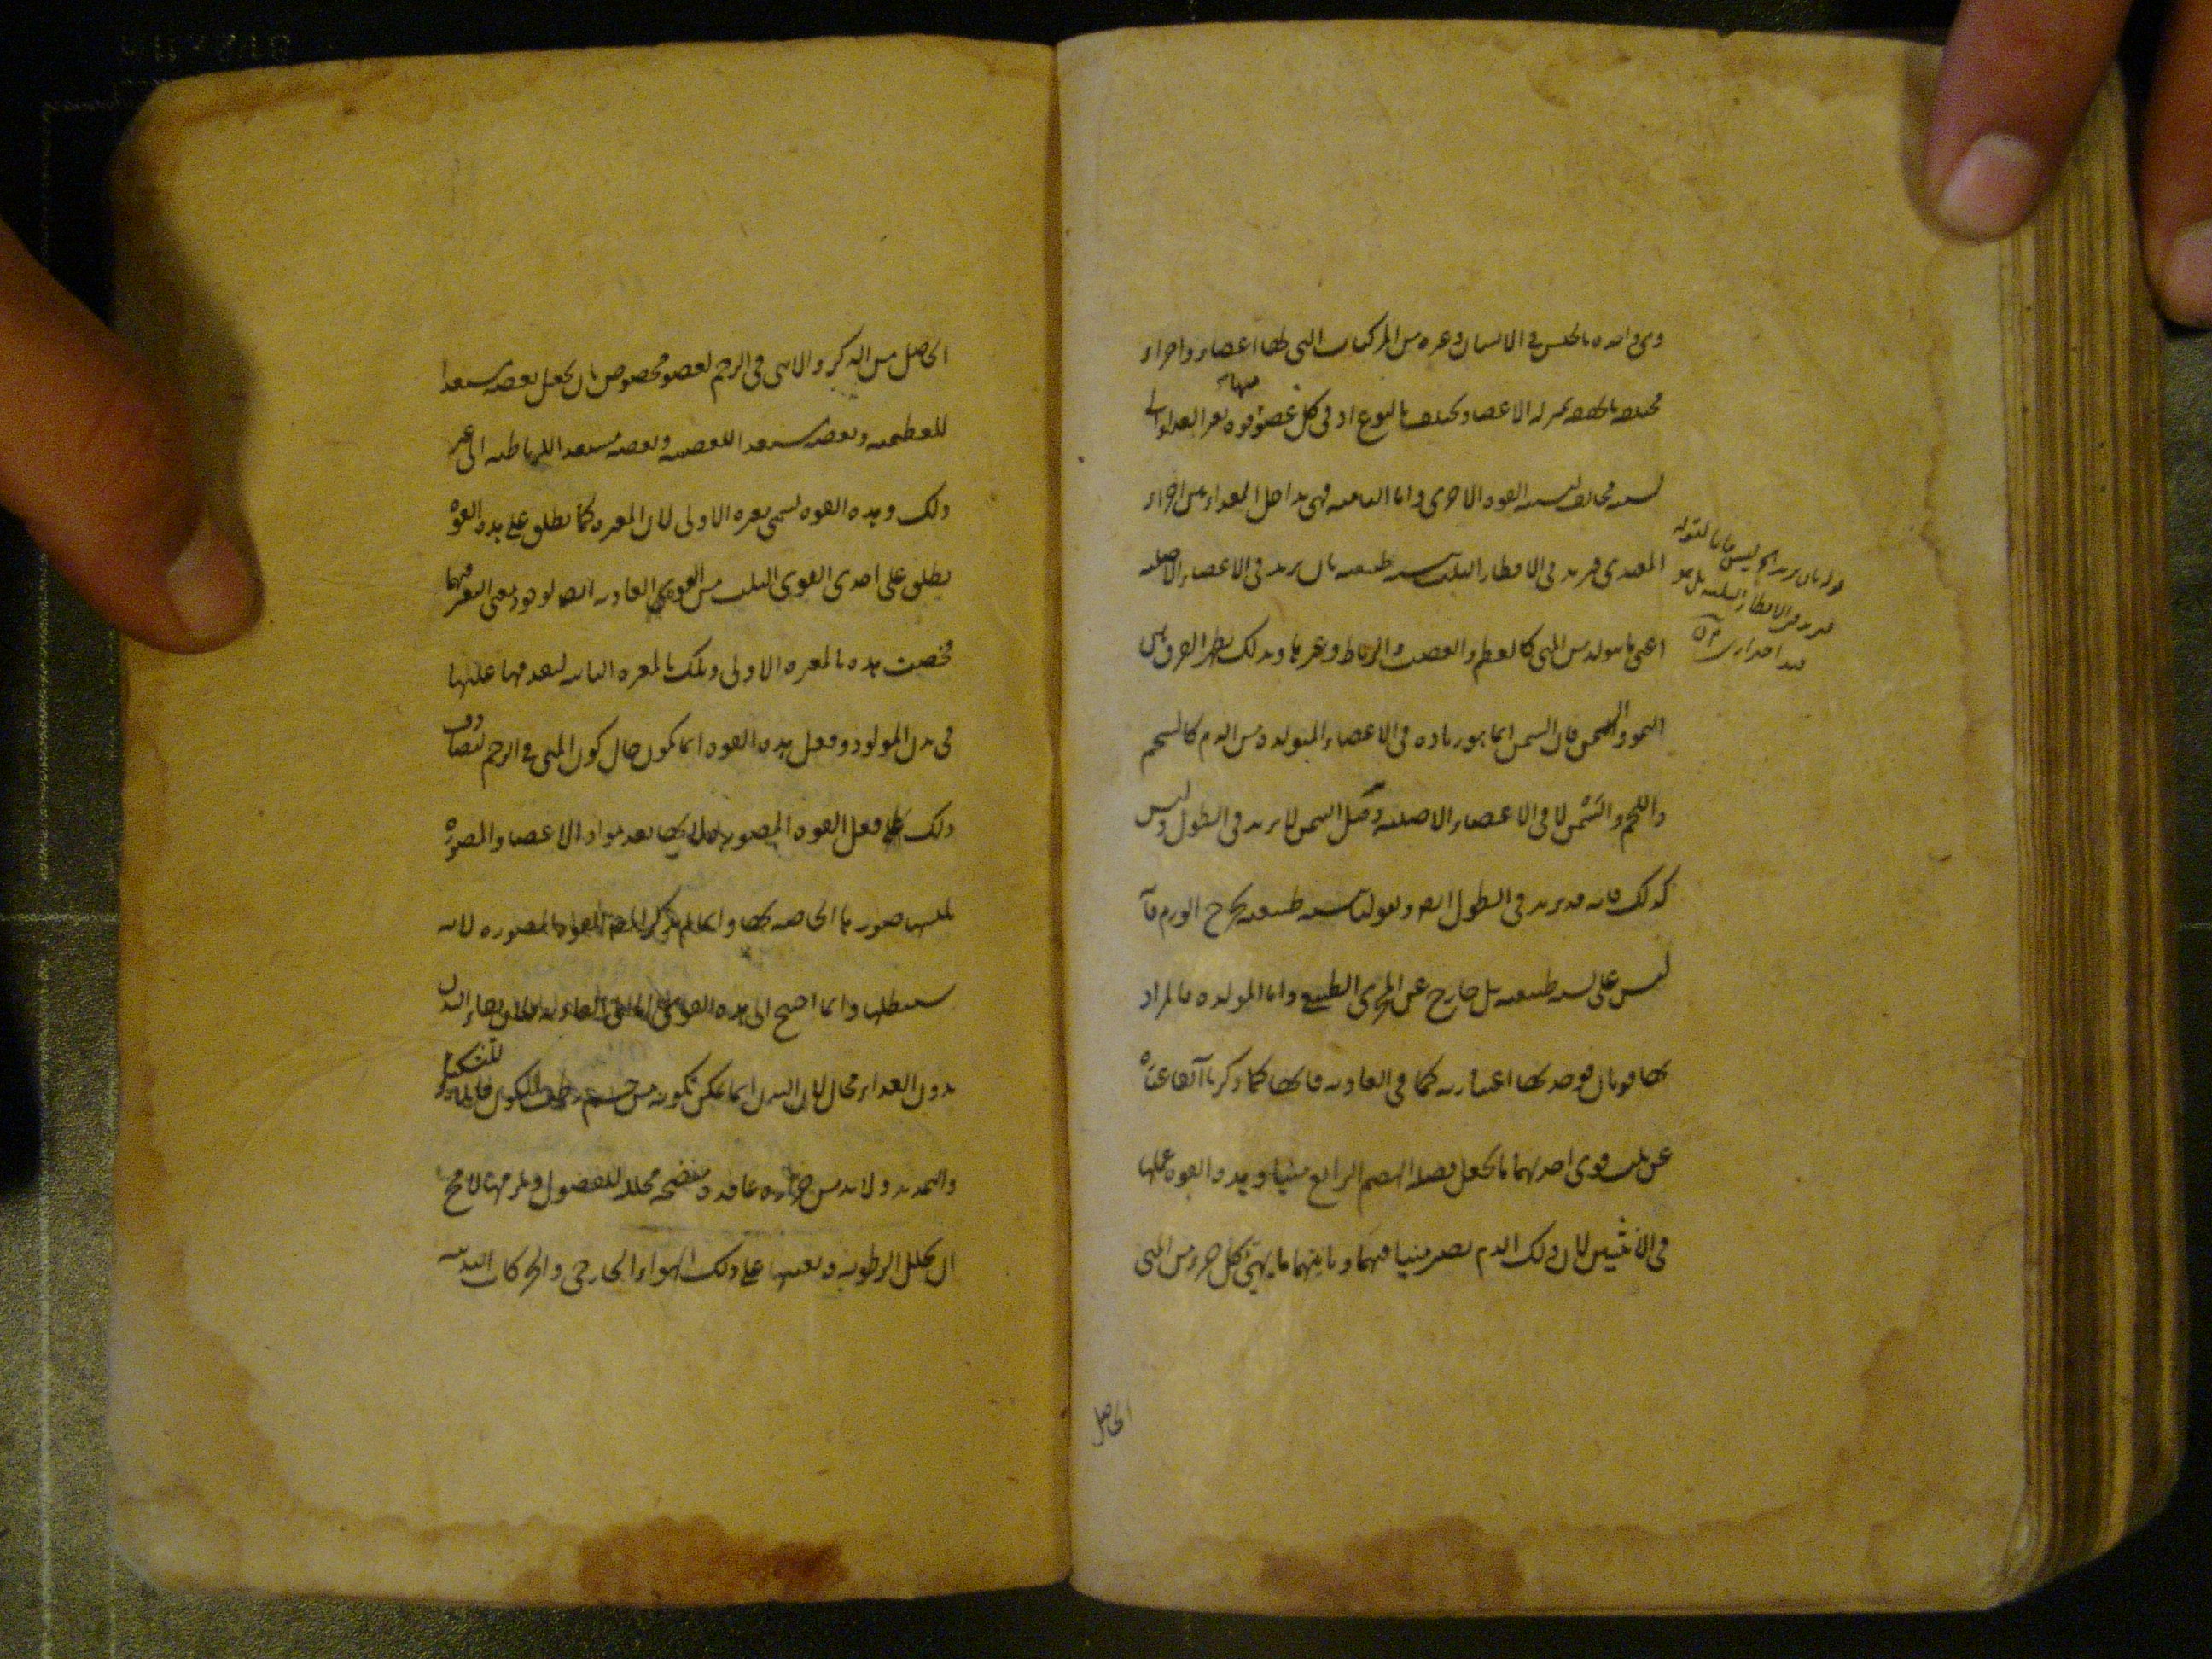 وهى واحدة بالجنس فى الانسان وغيره من المركبات التى لها اعضاء واجزاء
مختلفة بالحقيقة بمنزلة الاعضاء وتختلف بالنوع اذ فى كل عضو منها قوة تغير الغذاء الى
نسبة مخالفة لنسبة القوة الاخرى واما النامية فهى تداخل الغذاء بين اجزاء
المغتذى فيزيد فى الاقطار الثلثة بنسبة طبيعية بان يزيد فى الاعضاء الاصلية
اعنى ما يتولد من المنى كالعظم والعصب والرباط وغيرها وبذلك يظهر الفرق بين
النمو والسمن فان السمن انما هو زيادة فى الاعضاء المتولدة من الدم كالشحم
واللحم والسمن لا فى الاعضاء الاصلية وقيل السمن لا يزيد فى الطول وليس
كذلك فانه قد يزيد فى الطول ايضا وبقولنا بنسبة طبيعية يخرج الورم فانه
ليس على نسبة طبيعية بل خارج عن المجرى الطبيعى واما المولدة فالمراد
بها قوتان فوحدتها اعتبارية كما فى الغاذية فانها كما ذكرنا آنفا عبارة
عن ثلث قوى احديهما ما يجعل فضلة الهضم الرابع منيا وهذه القوة عملها
فى الانثيين لان ذلك الدم يصير منيا فيهما وثانيتهما ما يهيئ كل جزء من المنى
قوله بان يزيد الخ ليس بيانا لقوله
فيزيد فى الاقطار الثلثة بل هو
قيد احترازى
الحاصل
الحاصل من الذكر والانثى فى الرحم لعضو مخصوص بان يجعل بعضه مستعدا
للعظمية وبعضه مستعدا للعصبية وبعضه مستعدا للرباطية الى غير
ذلك وهذه القوة تسمى مغيرة الاولى لان المغيرة كما يطلق على هذه القوة
يطلق على احدى القوى الثلث من القوى الغاذية ايضا لوجود معنى التغير فيهما
فخصت هذه بالمغيرة الاولى وتلك بالمغيرة الثانية لتقدمها عليها
فى بدن المولود وفعل هذه القوة انما يكون حال كون المنى فى الرحم ليصادف
ذلك فعل القوة المصورة لانها تعد مواد الاعضاء والمصورة
تلبسها صورها الخاصة بها وانما لم يذكر المصورة لانه
سيبطلها وانما احتيج الى هذه القوى بقاء البدن
بدون الغذاء محال لان البدن انما يمكن تكونه من جسم رطب للتشكل
والتمديد ولا بد من حرارة عاقدة ومنضجة محللة للفضول ويلزمها لا محالة
ان تحلل الرطوبة ويعينها على ذلك الهواء الخارجى والحركات البدنية